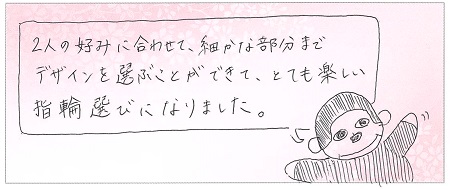 2人の好みに合わせて、細かな部分まで
デザインを選ぶことができて、とても楽しい
指輪選びになりました。